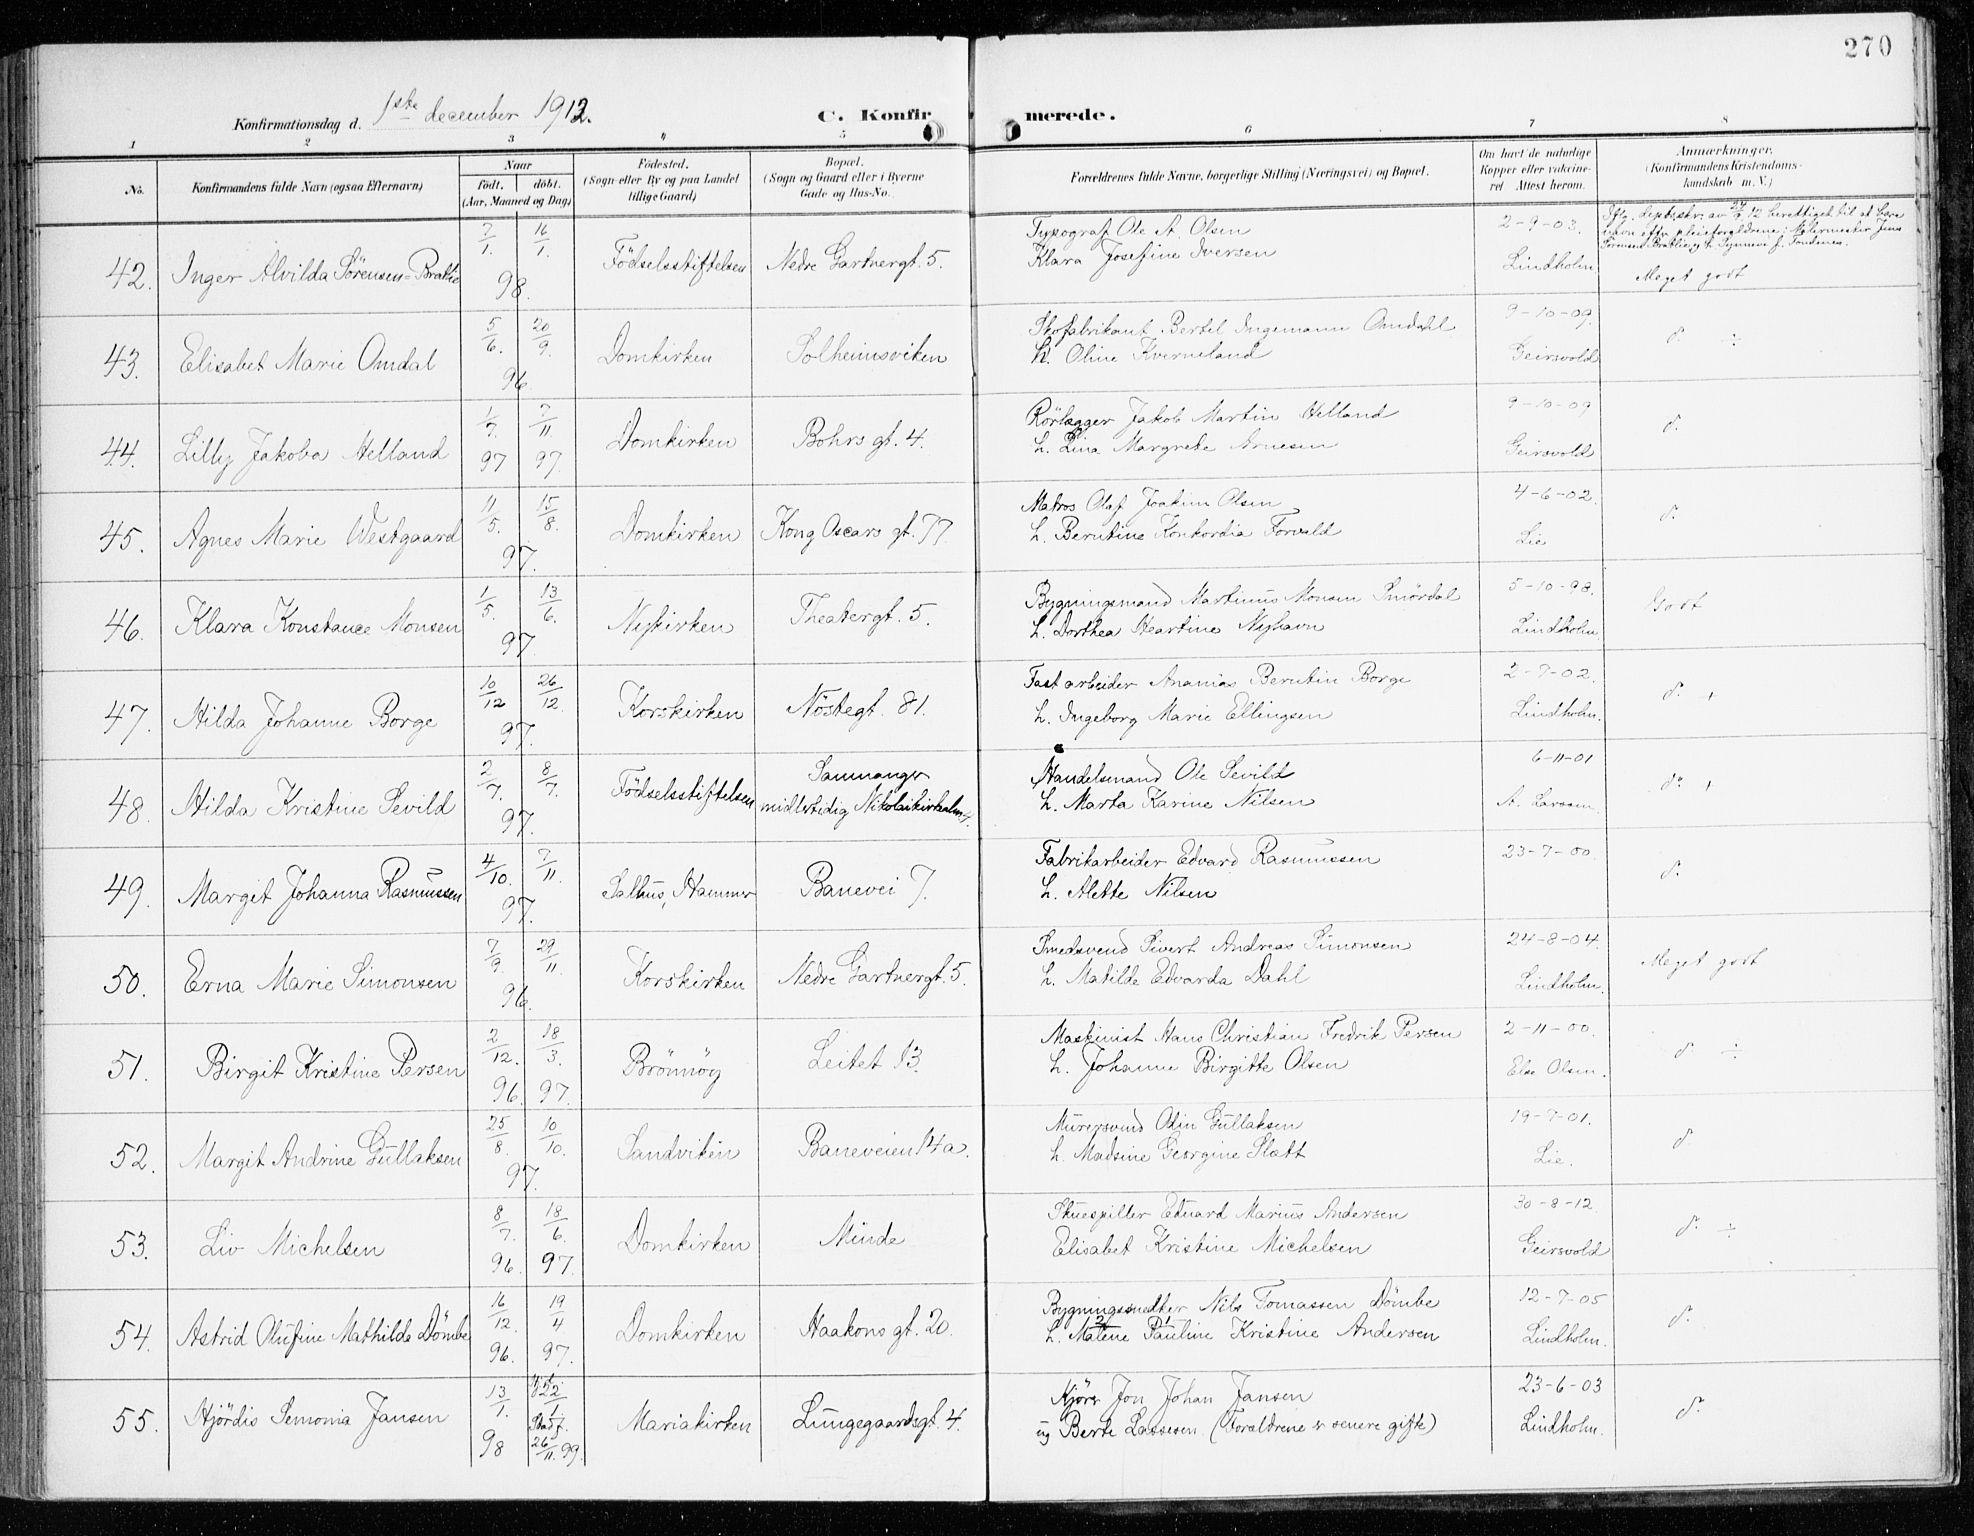 270
Konfirmationsdag d. 1ste december 1912.
C. Konfirmerede.
1 2 3 4 5 6 7 8
No.
Konfirmandens fulde Navn (ogsaa Efternavn)
Naar
født. døbt.
(Aar, Maaned og Dag)
Fødested.
(Sogn eller By og paa Landet
tillige Gaard)
Bopæl.
(Sogn og Gaard eller i Byerne
Gade og Hus-No.
Forældrenes fulde Navne, borgerlige Stilling (Næringsvei) og Bopæl.
Om havt de naturlige
Kopper eller vaccineret
Attest herom.
Anmærkninger.
(Konfirmandens Kristendoms-
kundskab m. V.)
42. Inger Alvilda Sörensen-Bratlie
7/1. 16/1. 98.
Födselsstiftelsen
Nedre Gartnergt. 5.
Typograf Ole A. Olsen
Klara Josefine Iversen
2-9-03.
Lindholm
Meget godt
43. Elisabet Marie Omdal
5/6. 20/9. 96.
Domkirken
Solheimsviken
Skofabrikant Bertel Ingemann Omdahl
h. Oline Kverneland
9-10-09.
Geirsvold
d. ÷
44. Lilly Jakoba Helland
1/7. 97 7/11. 97.
Domkirken
Bohrs gt. 4.
Rörlægger Jakob Martin Helland
h. Lina Margrete Arnesen
9-10-09
Geirsvold
d.
45. Agnes Marie Westgaard
11/5. 15/8. 97.
Domkirken
Kong Oscars gt. 77
Matros Olaf Joakim Olsen
h. Berntine Konkordia Forvald
4-6-02.
Lie
d.
46. Klara Konstance Monsen
1/5. 13/6. 97.
Nykirken
Theatergt. 5.
Bygningsmand Martinus Monsen Smördal
h. Dorthea Heartine Nyhavn
5-10-98.
Lindholm.
Godt
47. Hilda Johanne Borge
10/12 26/12. 97.
Korskirken
Nöstegt. 81.
Fast arbeider Ananias Berntin Borge
h. Ingeborg Marie Ellingsen
2-7-02.
Lindholm.
d. +
48. Hilda Kristine Sevild
2/7. 8/7. 97.
Födselsstiftelsen
Samnanger
midlertidig
Handelsmand Ole Sevild
h. Marta Karine Nilsen
6-11-01
A. Larssen
do +
49. Margit Johanna Rasmussen
4/10. 7/11. 97.
Salhus, Hammer
Banevei 7.
Fabrikarbeider Edvard Rasmussen
h. Alette Nilsen
23-7-00.
d.
50. Erna Marie Simonsen
7/9. 29/11. 96.
Korskirken
Nedre Gartnergt. 5.
Smedsvend Sivert Andreas Simonsen
h. Matilde Edvarda Dahl
24-8-04.
Lindholm.
Meget godt
51. Birgit Kristine Persen
2/12. 96. 18/3. 97.
Brönnöy
Leitet 13.
Maskinist Hans Christian Fredrik Persen
h. Johanne Birgitte Olsen
2-11-00.
Else Olsen.
d. ÷
52. Margit Andrine Gullaksen
25/8. 10/10. 97.
Sandviken
Baneveien 14a.
Murersvend Odin Gullaksen
h. Madsine Georgine Slatt
19-7-01.
Lie.
d
53. Liv Michelsen
8/7. 96. 18/6. 97.
Domkirken
Minde
Skuespiller Edvard Marius Andersen
Elisabet Kristine Michelsen
30-8-12.
Geirsvold
d. ÷
54. Astrid Olufine Mathilde Dömbe
16/12. 96. 19/4. 97.
Domkirken
Haakons gt. 20.
Bygningssnedker Nils Tomassen Dömbe
h. Malene Pauline Kristine Andersen
12-7-05
Lindholm.
d.
55. Hjördis Semonia Jansen
13/1. 98 22/1 Stadf. 26/11. 99.
Mariakirken
Lungegaardsgt. 4.
Kjörer Jon Johan Jansen
og Berte Lassesen. (Forældrene er senere gifte)
23-6-03
Lindholm.
d.